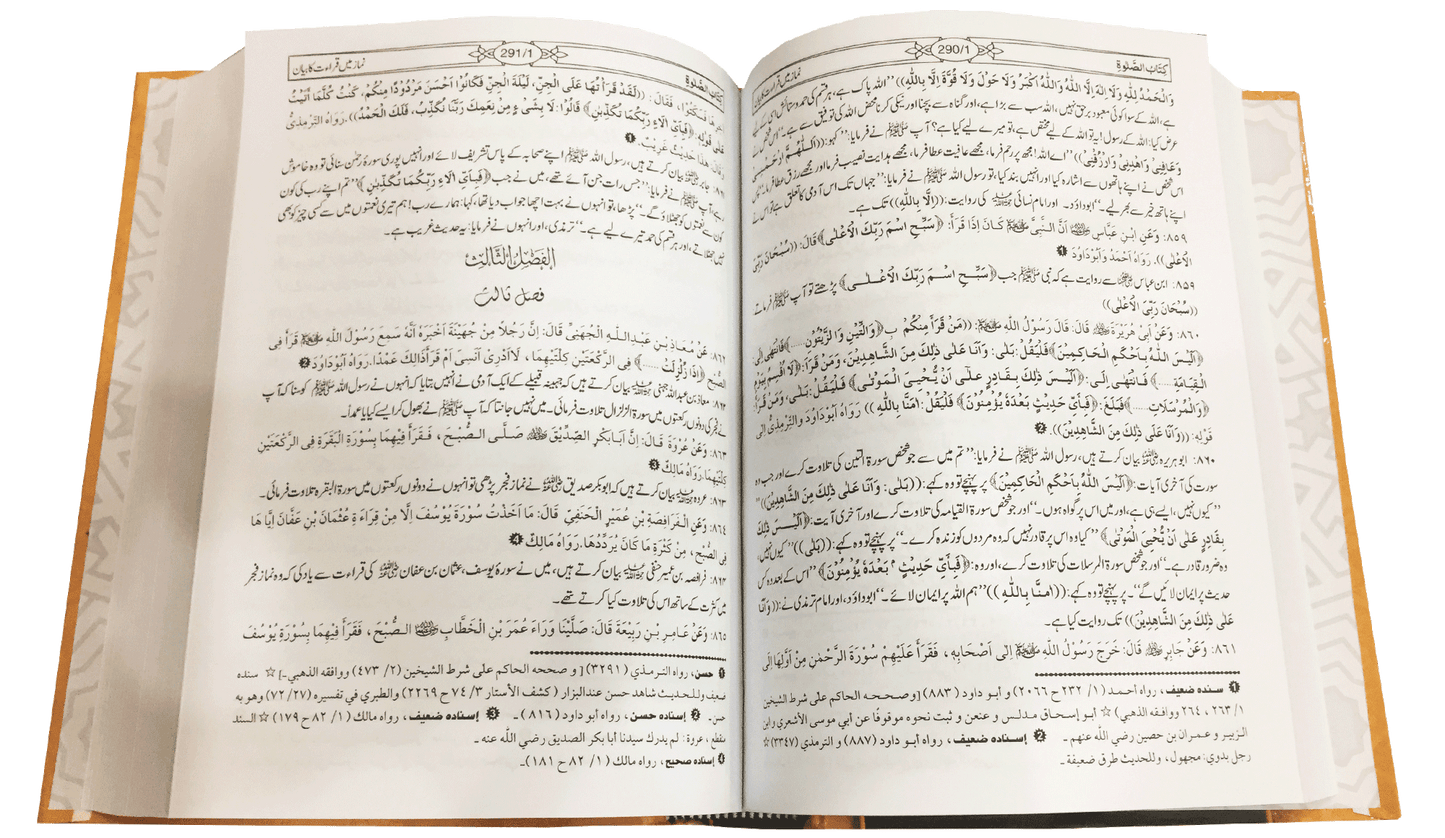 كِتَابُ الصَّلٰوةِ 290/1 نماز میں قراءت کا بیان
وَالْحَمْدُ لِلّٰهِ وَلَا اِلٰهَ اِلَّا اللّٰهُ وَاللّٰهُ اَكْبَرُ وَلَا حَوْلَ وَلَا قُوَّةَ اِلَّا بِاللّٰهِ)) ’’اللہ پاک ہے، ہر قسم کی حمد و ستائش اسی کے لیے
ہے، اللہ کے سوا کوئی معبود برحق نہیں، اللہ سب سے بڑا ہے، اور گناہ سے بچنا اور نیکی کرنا محض اللہ کی توفیق سے ہے۔‘‘ اس شخص نے
عرض کیا: اللہ کے رسول! یہ تو اللہ کے لیے مختص ہے، تو میرے لیے کیا ہے؟ آپ ﷺ نے فرمایا: ’’کہو: ((اَللّٰهُمَّ ارْحَمْنِيْ
وَعَافِنِيْ وَاهْدِنِيْ وَارْزُقْنِيْ)) ’’اے اللہ! مجھ پر رحم فرما، مجھے عافیت عطا فرما، مجھے ہدایت نصیب فرما اور مجھے رزق عطا فرما۔‘‘
اس شخص نے اپنے ہاتھوں سے اشارہ کیا اور انہیں بند کیا، تو رسول اللہ ﷺ نے فرمایا: ’’جہاں تک اس آدمی کا تعلق ہے تو اس نے
اپنے ہاتھ خیر سے بھر لیے۔‘‘ ابوداؤد۔ اور امام نسائی کی روایت: ((اِلَّا بِاللّٰهِ)) تک ہے۔
٨٥٩: وَعَنِ ابْنِ عَبَّاسٍ اَنَّ النَّبِيَّ ﷺ كَانَ اِذَا قَرَأَ: ﴿سَبِّحِ اسْمَ رَبِّكَ الْاَعْلٰى﴾ قَالَ: ((سُبْحَانَ رَبِّيَ
الْاَعْلٰى)). رَوَاهُ اَحْمَدُ وَاَبُوْدَاوُدَ ❶
٨٥٩: ابن عباس سے روایت ہے کہ نبی ﷺ جب ﴿سَبِّحِ اسْمَ رَبِّكَ الْاَعْلٰى﴾ پڑھتے تو آپ ﷺ فرماتے
((سُبْحَانَ رَبِّيَ الْاَعْلٰى))
٨٦٠: وَعَنْ اَبِيْ هُرَيْرَةَ قَالَ: قَالَ رَسُوْلُ اللّٰهِ ﷺ: ((مَنْ قَرَأَ مِنْكُمْ ب ﴿وَالتِّيْنِ وَالزَّيْتُوْنِ......﴾ فَانْتَهٰى اِلٰى:
﴿اَلَيْسَ اللّٰهُ بِاَحْكَمِ الْحَاكِمِيْنَ﴾ فَلْيَقُلْ: بَلٰى؛ وَاَنَا عَلٰى ذٰلِكَ مِنَ الشَّاهِدِيْنَ، وَمَنْ قَرَأَ: ﴿لَا اُقْسِمُ بِيَوْمِ
الْقِيَامَةِ.....﴾ فَانْتَهٰى اِلٰى: ﴿اَلَيْسَ ذٰلِكَ بِقَادِرٍ عَلٰى اَنْ يُّحْيِيَ الْمَوْتٰى﴾ فَلْيَقُلْ: بَلٰى، وَمَنْ قَرَأَ
﴿وَالْمُرْسَلَاتِ.....﴾ فَبَلَغَ: ﴿فَبِاَيِّ حَدِيْثٍ بَعْدَهٗ يُؤْمِنُوْنَ﴾ فَلْيَقُلْ: اٰمَنَّا بِاللّٰهِ)) رَوَاهُ اَبُوْدَاوُدَ وَالتِّرْمِذِيُّ اِلٰى
قَوْلِهٖ: ((وَاَنَا عَلٰى ذٰلِكَ مِنَ الشَّاهِدِيْنَ)). ❷
٨٦٠: ابوہریرہ بیان کرتے ہیں، رسول اللہ ﷺ نے فرمایا: ’’تم میں سے جو شخص سورۃ التین کی تلاوت کرے اور جب وہ
سورت کی آخری آیات: ﴿اَلَيْسَ اللّٰهُ بِاَحْكَمِ الْحَاكِمِيْنَ﴾ پر پہنچے تو وہ کہے: ((بَلٰى: وَاَنَا عَلٰى ذٰلِكَ مِنَ الشَّاهِدِيْنَ))‘‘
’’کیوں نہیں، ایسے ہی ہے، اور میں اس پر گواہ ہوں۔‘‘ اور جو شخص سورۃ القیامہ کی تلاوت کرے اور آخری آیت: ﴿اَلَيْسَ ذٰلِكَ
بِقَادِرٍ عَلٰى اَنْ يُّحْيِيَ الْمَوْتٰى﴾ ’’کیا وہ اس پر قادر نہیں کہ وہ مردوں کو زندہ کرے۔‘‘ پر پہنچے تو وہ کہے: ((بَلٰى)) ’’کیوں نہیں
وہ ضرور قادر ہے۔‘‘ اور جو شخص سورۃ المرسلات کی تلاوت کرے، اور وہ: ﴿فَبِاَيِّ حَدِيْثٍ بَعْدَهٗ يُؤْمِنُوْنَ﴾ ’’اس کے بعد وہ کس
حدیث پر ایمان لائیں گے‘‘۔ پر پہنچے تو وہ کہے: ((اٰمَنَّا بِاللّٰهِ)) ’’ہم اللہ پر ایمان لائے۔‘‘ ابوداؤد، اور امام ترمذی نے: ((وَاَنَا
عَلٰى ذٰلِكَ مِنَ الشَّاهِدِيْنَ)) تک روایت کیا ہے۔
٨٦١: وَعَنْ جَابِرٍ قَالَ: خَرَجَ رَسُوْلُ اللّٰهِ ﷺ اِلٰى اَصْحَابِهٖ، فَقَرَأَ عَلَيْهِمْ سُوْرَةَ الرَّحْمٰنِ مِنْ اَوَّلِهَا اِلٰى
❶ سنده ضعيف، رواه احمد (١/ ٢٣٢ ح ٢٠٦٦) و أبو داود (٨٨٣) [وصححه الحاكم على شرط الشيخين
١/ ٢٦٣، ٢٦٤ ووافقه الذهبي] ☆ أبو إسحاق مدلس و عنعن و ثبت نحوه موقوفًا عن أبي موسى الأشعري وابن
الزبير و عمران بن حصين رضي الله عنهم۔ ❷ إسناده ضعيف، رواه أبو داود (٨٨٧) و الترمذي (٣٣٤٧) ☆
رجل بدوي: مجهول، وللحديث طرق ضعيفة۔
كِتَابُ الصَّلٰوةِ 291/1 نماز میں قراءت کا بیان
اٰخِرِهَا فَسَكَتُوْا، فَقَالَ: ((لَقَدْ قَرَأْتُهَا عَلَى الْجِنِّ، لَيْلَةَ الْجِنِّ فَكَانُوْا اَحْسَنَ مَرْدُوْدًا مِنْكُمْ، كُنْتُ كُلَّمَا اَتَيْتُ
عَلٰى قَوْلِهٖ: ﴿فَبِاَيِّ اٰلَاءِ رَبِّكُمَا تُكَذِّبٰنِ﴾ قَالُوْا: لَا بِشَيْءٍ مِنْ نِعَمِكَ رَبَّنَا نُكَذِّبُ، فَلَكَ الْحَمْدُ)). رَوَاهُ التِّرْمِذِيُّ
وَقَالَ: هٰذَا حَدِيْثٌ غَرِيْبٌ. ❶
جابر بیان کرتے ہیں، رسول اللہ ﷺ اپنے صحابہ کے پاس تشریف لائے اور انہیں پوری سورۂ رحمٰن سنائی تو وہ خاموش
رہے، آپ ﷺ نے فرمایا: ’’جس رات جن آئے تھے، میں نے جب ﴿فَبِاَيِّ اٰلَاءِ رَبِّكُمَا تُكَذِّبٰنِ﴾ ’’تم اپنے رب کی کون
کون سے نعمتوں کو جھٹلاؤ گے۔‘‘ پڑھا، تو انہوں نے بہت اچھا جواب دیا تھا، کہا: ہمارے رب! ہم تیری نعمتوں میں سے کسی چیز کو بھی
نہیں جھٹلاتے، اور ہر قسم کی حمد تیرے لیے ہے۔‘‘ ترمذی، اور انہوں نے فرمایا: یہ حدیث غریب ہے۔
اَلْفَصْلُ الثَّالِثُ
فصل ثالث
٨٦٢: عَنْ مُعَاذِ بْنِ عَبْدِ اللّٰهِ الْجُهَنِيِّ قَالَ: اِنَّ رَجُلًا مِنْ جُهَيْنَةَ اَخْبَرَهٗ اَنَّهٗ سَمِعَ رَسُوْلَ اللّٰهِ ﷺ قَرَأَ فِي
الصُّبْحِ ﴿اِذَا زُلْزِلَتْ .....﴾ فِي الرَّكْعَتَيْنِ كِلْتَيْهِمَا، لَا اَدْرِيْ اَنَسِيَ اَمْ قَرَأَ ذَالِكَ عَمْدًا. رَوَاهُ اَبُوْدَاوُدَ ❷
٨٦٢: معاذ بن عبداللہ جہنی بیان کرتے ہیں کہ جہینہ قبیلے کے ایک آدمی نے انہیں بتایا کہ انہوں نے رسول اللہ ﷺ کو سنا کہ آپ
نے فجر کی دونوں رکعتوں میں سورۃ الزلزال تلاوت فرمائی۔ میں نہیں جانتا کہ آپ ﷺ نے بھول کر ایسے کیا یا عمداً۔
٨٦٣: وَعَنْ عُرْوَةَ قَالَ: اِنَّ اَبَابَكْرِ الصِّدِّيْقَ صَلَّى الصُّبْحَ، فَقَرَأَ فِيْهِمَا بِسُوْرَةِ الْبَقَرَةِ فِي الرَّكْعَتَيْنِ
كِلْتَيْهِمَا. رَوَاهُ مَالِكٌ ❸
٨٦٣: عروہ بیان کرتے ہیں کہ ابوبکر صدیق نے نماز فجر پڑھی تو انہوں نے دونوں رکعتوں میں سورۃ البقرہ تلاوت فرمائی۔
٨٦٤: وَعَنِ الْفَرَافِصَةِ بْنِ عُمَيْرٍ الْحَنَفِيِّ قَالَ: مَا اَخَذْتُ سُوْرَةَ يُوْسُفَ اِلَّا مِنْ قِرَاءَةِ عُثْمَانَ بْنِ عَفَّانَ اِيَّاهَا
فِي الصُّبْحِ، مِنْ كَثْرَةِ مَا كَانَ يُرَدِّدُهَا. رَوَاهُ مَالِكٌ ❹
٨٦٤: فرافصہ بن عمیر حنفی بیان کرتے ہیں، میں نے سورۂ یوسف، عثمان بن عفان کی قراءت سے یاد کی کہ وہ نماز فجر
میں کثرت کے ساتھ اس کی تلاوت کیا کرتے تھے۔
٨٦٥: وَعَنْ عَامِرِ بْنِ رَبِيْعَةَ قَالَ: صَلَّيْنَا وَرَاءَ عُمَرَ بْنِ الْخَطَّابِ الصُّبْحَ، فَقَرَأَ فِيْهِمَا بِسُوْرَةِ يُوْسُفَ
❶ حسن، رواه الترمذي (٣٢٩١) [و صححه الحاكم على شرط الشيخين (٢/ ٤٧٣) ووافقه الذهبي۔] ☆ سنده
ضعيف وللحديث شاهد حسن عندالبزار (كشف الأستار ٣/ ٧٤ ح ٢٢٦٩) والطبري في تفسيره (٢٧/ ٧٢) وهو به
حسن۔ ❷ إسناده حسن، رواه أبو داود (٨١٦)۔ ❸ إسناده ضعيف، رواه مالك (١/ ٨٢ ح ١٧٩) ☆ السند
منقطع، عروة: لم يدرك سيدنا أبا بكر الصديق رضي الله عنه۔
❹ إسناده صحيح، رواه مالك (١/ ٨٢ ح ١٨١)۔